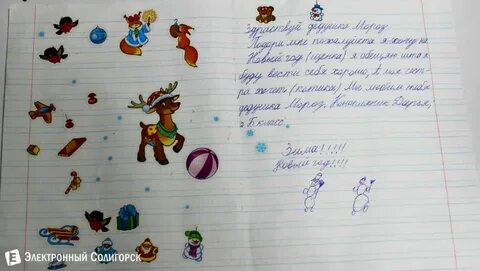 Здраствуй дедушка Мороз
Подари мне пожалуйста я хочу на
Новый год (щенка) я обещаю што я
буду вести себя хорошо, а моя сест-
ра хочет (котика) Мы любим тебя
дедушка Мороз. Дарья,
2 Б класс
Зима!!!!!
Новый год!!!!
Электронный Солигорск